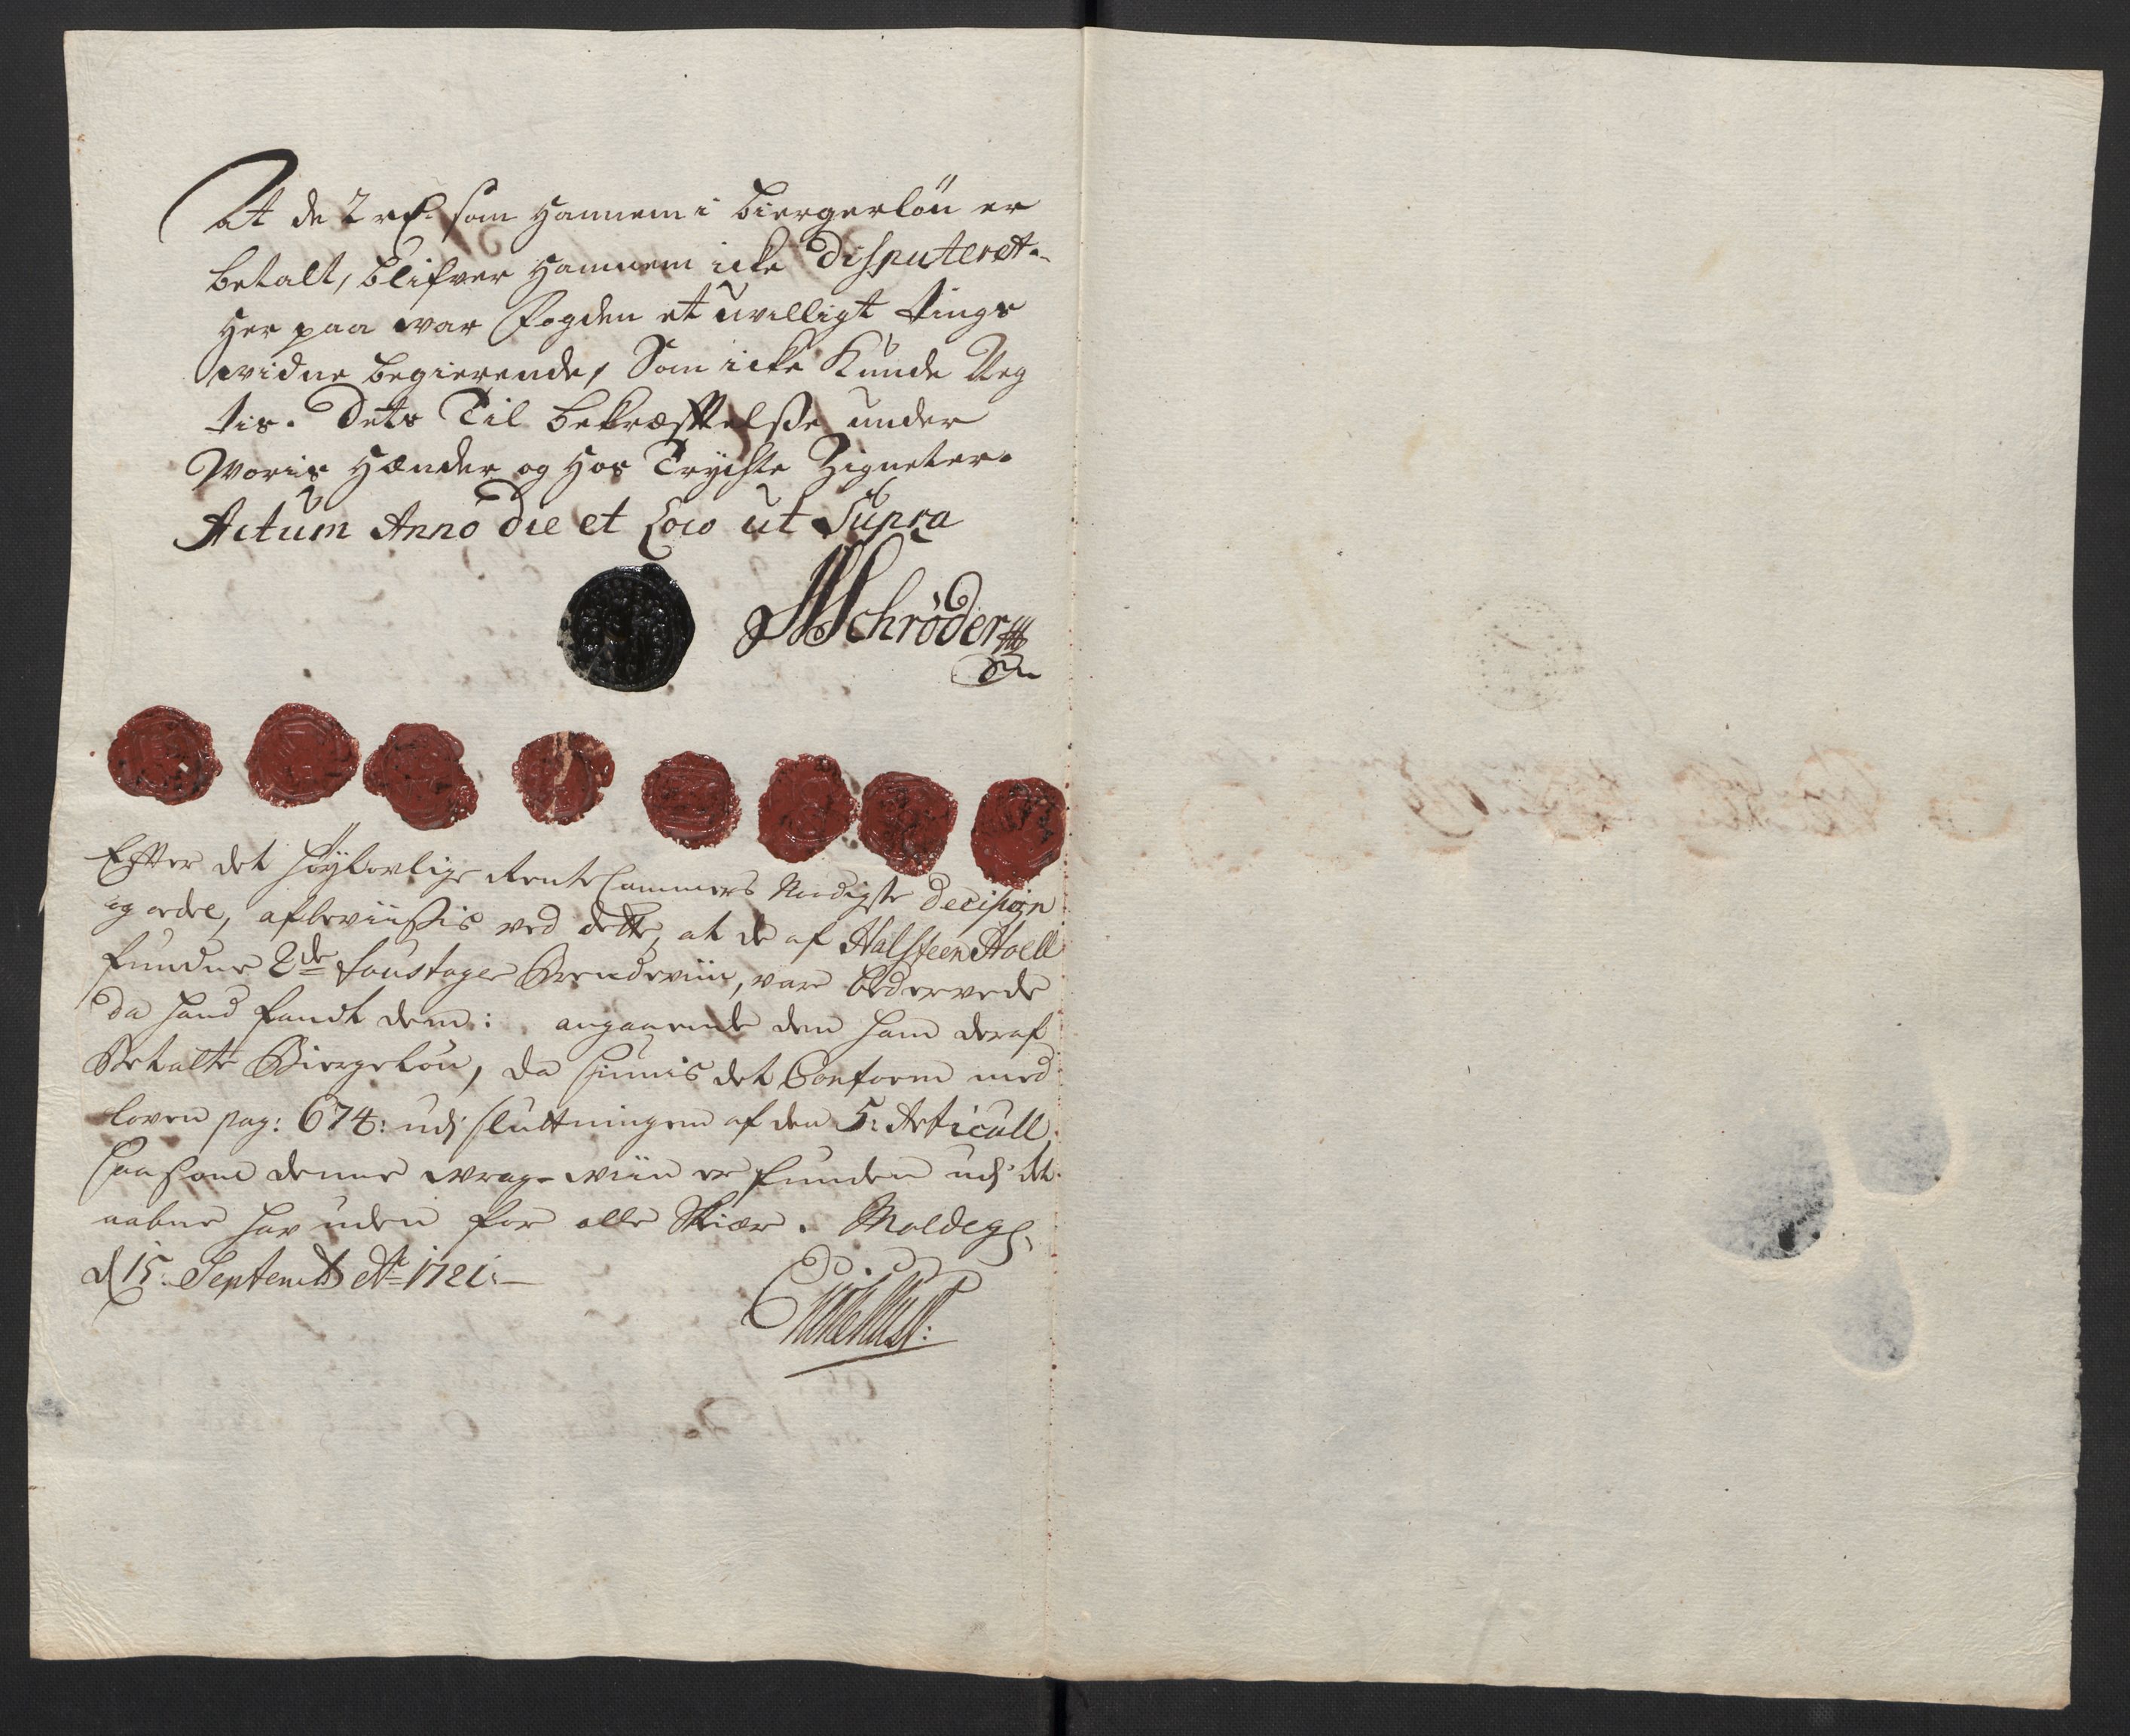 At de 2 rd. som hannem i biergerlön er
betalt, blifver hannem icke disputeret.
Her paa war Fogden et uvilligt tings
widne begierende, Som icke Kunde Neg
tis. Dets Til bekræfftelße under
Woris hænder og hos Trychte Zigneter.
Actum Anno die et Loco ut Supra
Schröder
Effter det höÿlovlige RenteCammers Naadigste decision
og ordre, afbeviißis ved dette, at de af Halsteen Hoell
fundne 2de foustager Brendeviin, var bedervede
da hand fandt dem: angaaende den ham deraf
Betalte Biergelön, da finnis det Conform med
loven pag: 674: udj sluttningen af den 5: Articull,
saasom denne wrag-wiin er funden udj det
aabne hav uden for alle Skiær. Moldegd.
d 15. Septembr Ao 1721.